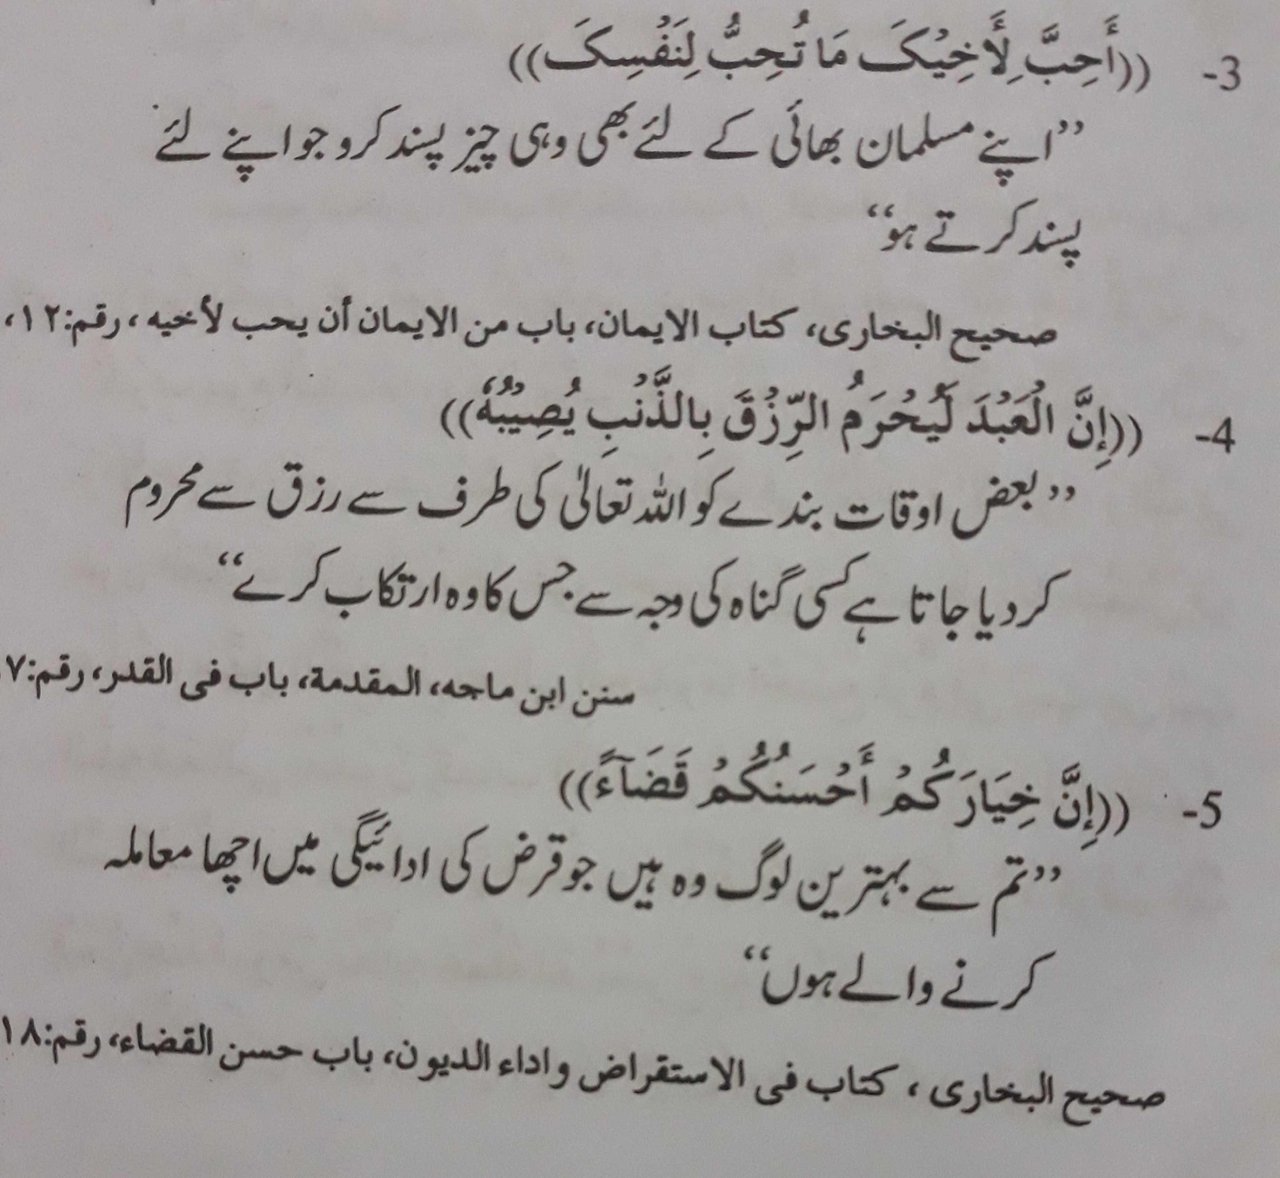 3- ((أَحِبَّ لِأَخِيْكَ مَا تُحِبُّ لِنَفْسِكَ))
”اپنے مسلمان بھائی کے لئے بھی وہی چیز پسند کرو جو اپنے لئے
پسند کرتے ہو“
صحیح البخاری، کتاب الایمان، باب من الایمان أن یحب لأخیہ، رقم:١٢،
4- ((إِنَّ الْعَبْدَ لَيُحْرَمُ الرِّزْقَ بِالذَّنْبِ يُصِيْبُهُ))
”بعض اوقات بندے کو اللہ تعالیٰ کی طرف سے رزق سے محروم
کر دیا جاتا ہے کسی گناہ کی وجہ سے جس کا وہ ارتکاب کرے“
سنن ابن ماجه، المقدمة، باب فی القدر، رقم:
5- ((إِنَّ خِيَارَكُمْ أَحْسَنُكُمْ قَضَآءً))
”تم سے بہترین لوگ وہ ہیں جو قرض کی ادائیگی میں اچھا معاملہ
کرنے والے ہوں“
صحیح البخاری، کتاب فی الاستقراض واداء الدیون، باب حسن القضاء، رقم:١٨